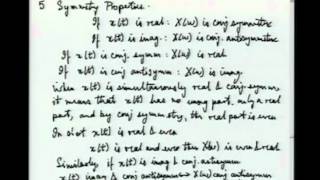 5 Symmetry Properties.
If x(t) is real : X(ω) is conj symmetric
If x(t) is imag. : X(ω) is conj. antisymmetric
If x(t) is conj. symm : X(ω) is real
If x(t) is conj antisymm : X(ω) is imag.
When x(t) is simultaneously real & conj. symm,
it means that x(t) has no imag part, only a real
part, and by conj symmetry, the real part is even
In short x(t) is real & even
x(t) is real and even then X(ω) is even & real
Similarly if x(t) is imag & conj antisymm
x(t) imag & conj antisymm X(ω) conj antisymm